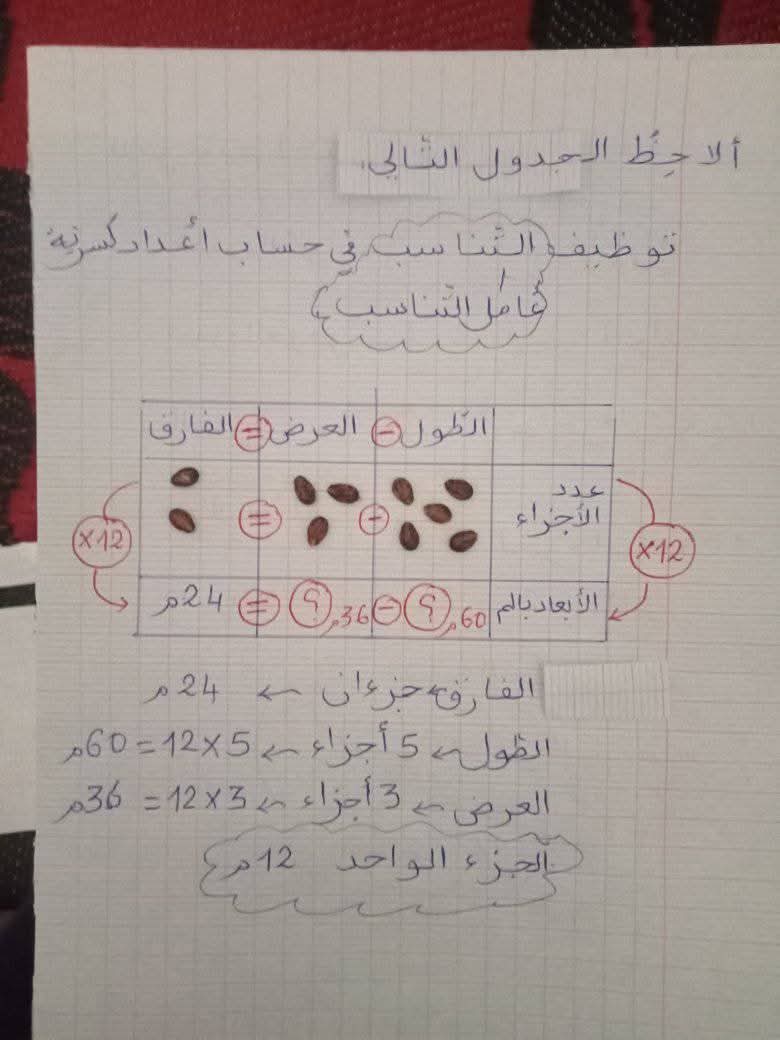 ألاحظ الجدول التالي.
توظيف التناسب في حساب أعداد كسرية
(عامل التناسب)
الطول - العرض = الفارق
عدد الأجزاء - =
×12 ×12
الأبعاد بالم ؟ 60م - ؟ 36م = 24م
الفارق ← جزءان ← 24م
الطول ← 5 أجزاء ← 5×12 = 60م
العرض ← 3 أجزاء ← 3×12 = 36م
الجزء الواحد 12م